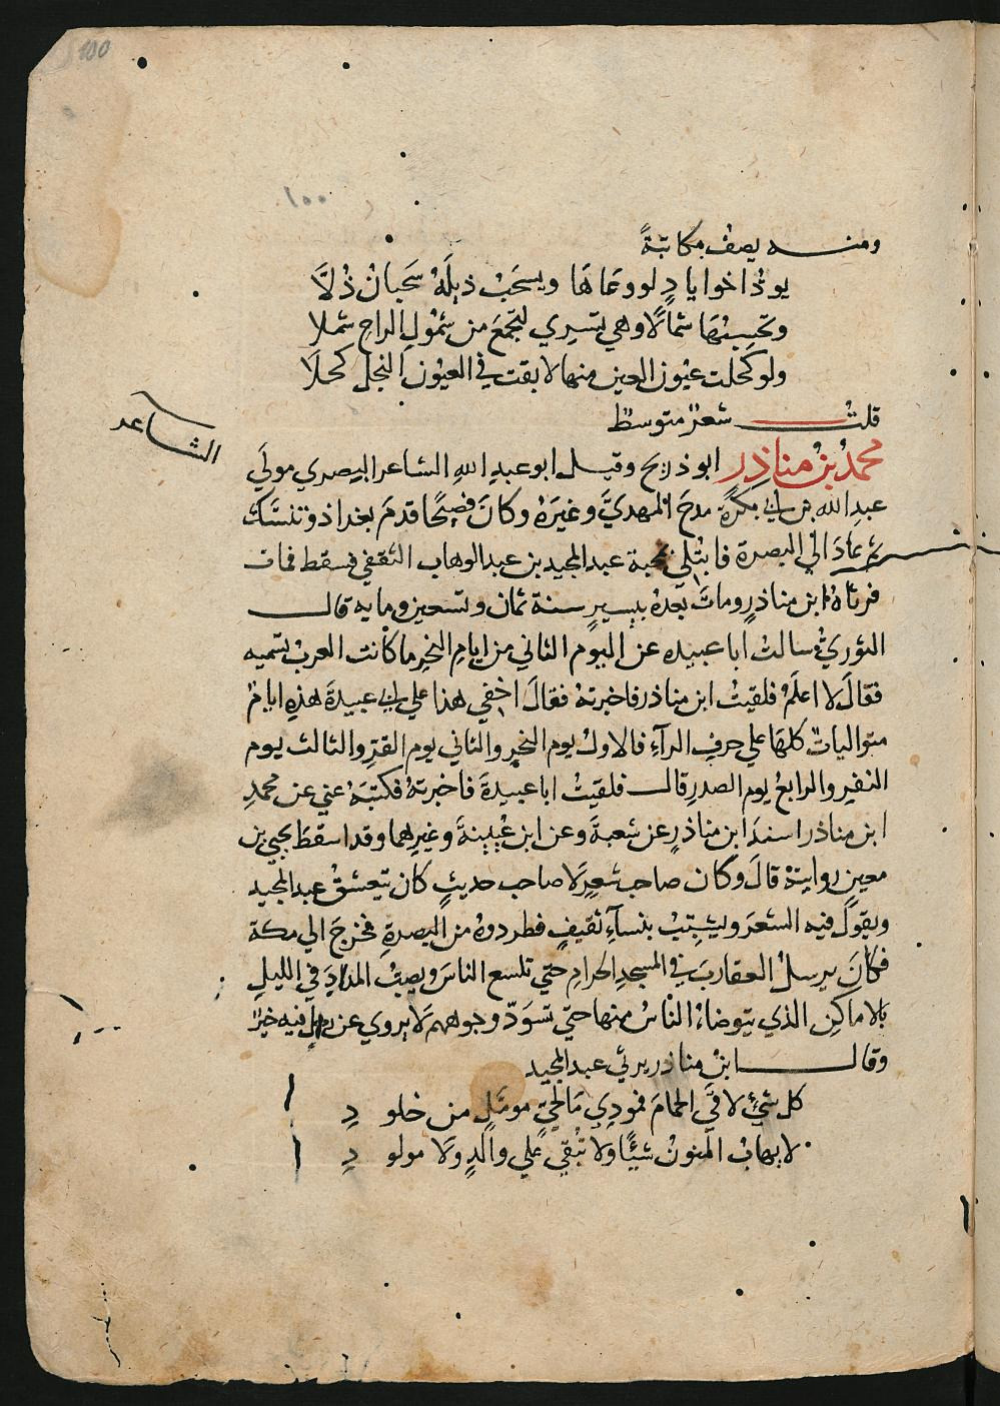 100
١٠٠
ومنه يصف مكاتبةً
يودّ اخوا يادٍ لو وعاها ويسحَبُ ذيلَهُ سَحبانُ ذُلاَّ
وتحسبُها شمالًا وهي تسري لتجمعَ من شمُولِ الراحِ شملا
ولو كحلت عيون العين منها لابقت في العيون النجل كحلَا
قلتُ شعرٌ متوسطٌ
الشاعر
محمدُ بنُ مناذِر ابو ذريح وقيل ابو عبدِ اللهِ الشاعر البصري مولَي
عبدِ الله بن ابي بكرةَ مدحَ المهديَّ وغيَرهُ وكانَ فصيحًا قدمَ بغداذ وتنسّك
ثم عادَ الي البصرة فابتُلي بمحبة عبد المجيد بن عبد الوهاب الثقفي فسقط فمات
فرثاهُ ابن مناذرٍ وماتَ بعدهُ بيسيرٍ سنة ثمان وتسعين ومايه قال
الثوريُّ سالتُ ابا عبيده عن اليوم الثاني من ايامِ النحرِ ما كانت العربُ تسميه
فقالَ لا اعلَمُ فلقيتُ ابن مناذر فاخبرتهُ فقالَ اخفي هذا علي ابي عبيدةَ هذهِ ايامٌ
متوالياتٌ كلهَا علي حرفِ الرآءِ فالاولُ يوم النحرِ والثاني يوم القرِّ والثالث يوم
النفيرِ والرابعُ يوم الصدرِ قال فلقيتُ ابا عبيدةَ فاخبرتهُ فكتبهُ عني عن محمدِ
ابن مناذر اسندَ ابن مناذرٍ عن شعبةَ وعن ابن عُيينةَ وغيرِهما وقد اسقطَ يحيي بن
معينٍ روايتهُ قالَ وكان صاحب شعرٍ لَا صاحب حديثٍ كان يتعشقُ عبد المجيد
ويقولُ فيه الشعرَ ويشبِّبُ بنسآءِ ثقيفٍ فطردوهُ من البصرةِ فخرجَ الي مكةَ
فكانَ يرسلُ العقاربَ في المسجدِ الحرامِ حتي تلسع الناسَ ويصبُّ المدادَ في الليلِ
بالاماكنِ الذي يتوضاءُ الناسُ منها حتي تسوَدّ وجوههم لَا يروي عن رجل فيه خيرٌ
وقال ابنُ مناذر يرثي عبد المجيد
كل شيءٍ لاقَي الحمامَ فمودِي مَا لحيٍّ مومّلٍ من خلودِ
لا يهابُ المنونُ شيئًا ولا تُبقي علي والدٍ ولَا مولودِ